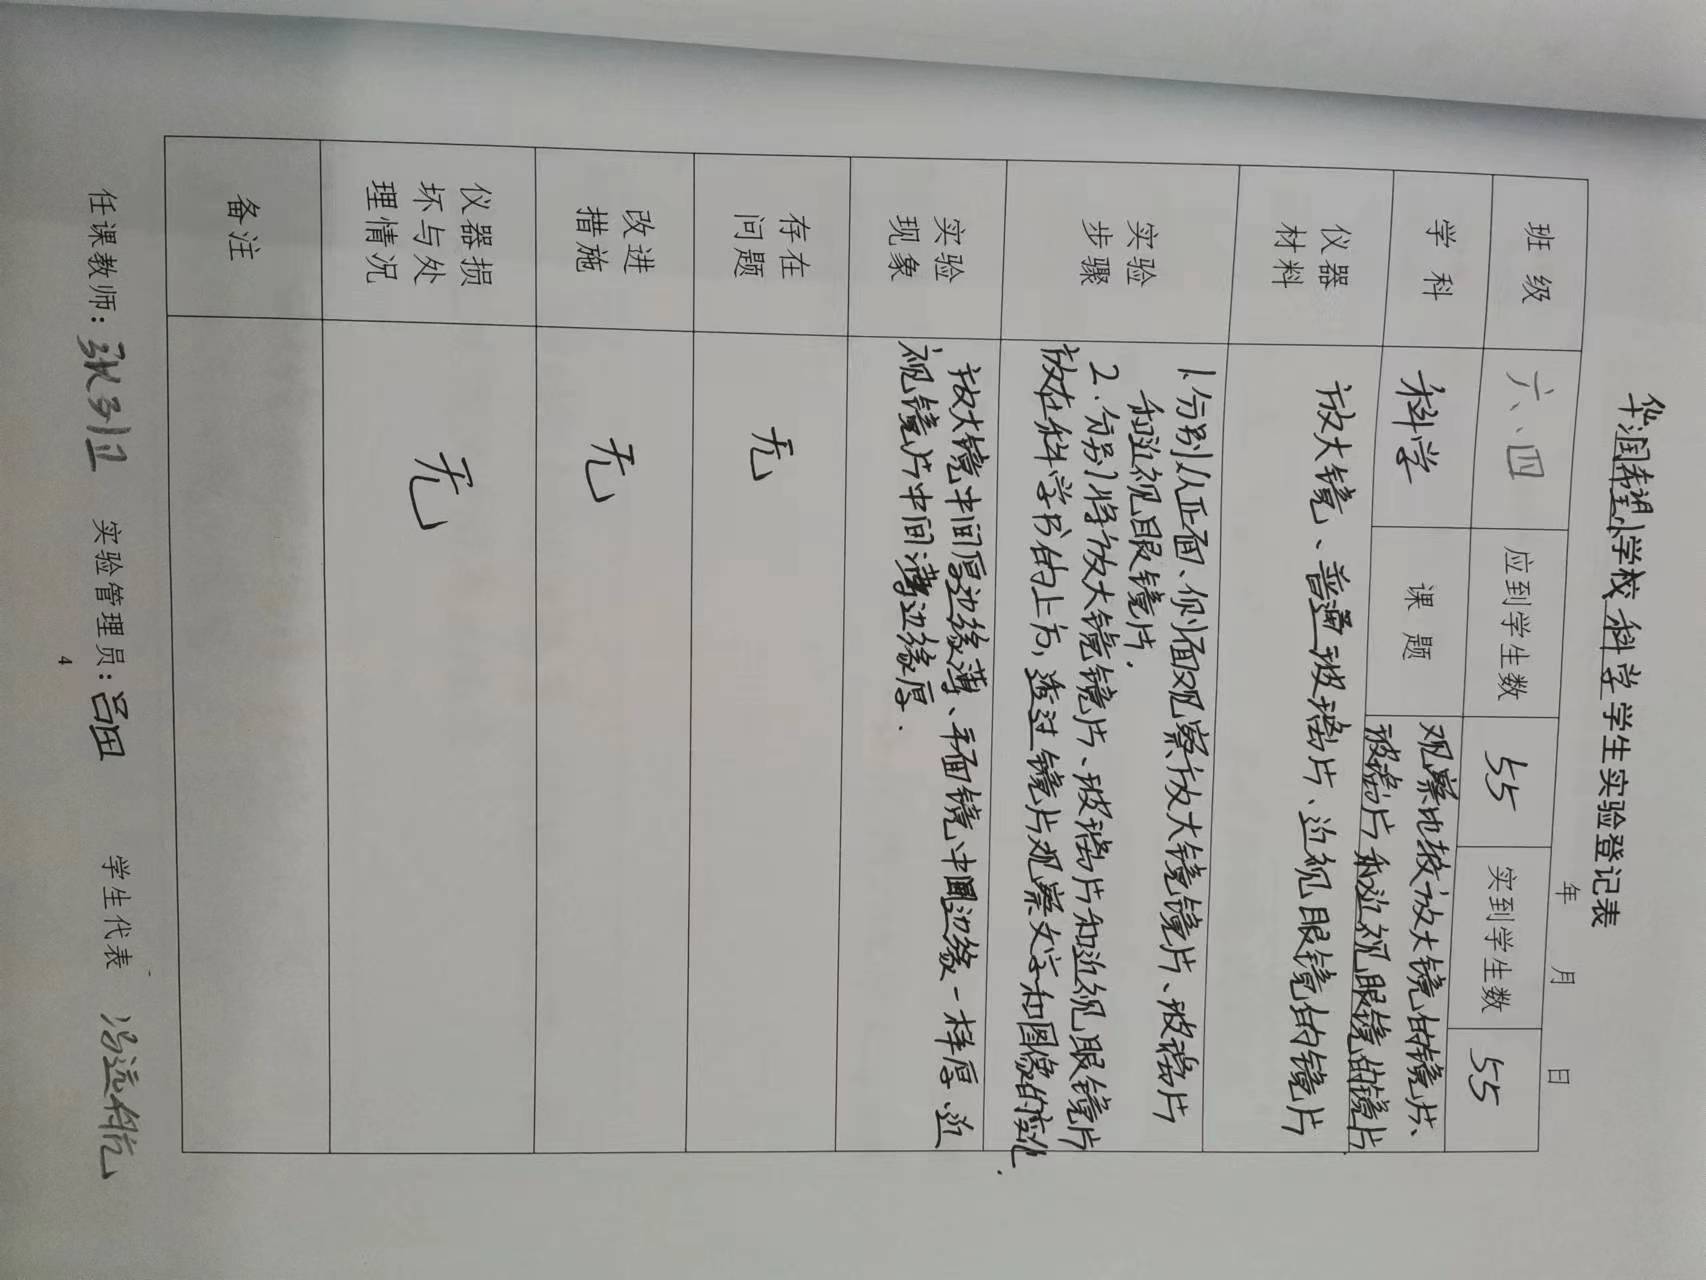 华润希望小学校科学学生实验登记表
年 月 日
班级 六、四 应到学生数 55 实到学生数 55
学科 科学 课题 观察比较放大镜的镜片、
玻璃片和近视眼镜的镜片
仪器
材料
放大镜、普通玻璃片、近视眼镜的镜片
实验
步骤
1.分别从正面、侧面观察放大镜镜片、玻璃片
和近视眼镜片.
2.分别将放大镜镜片、玻璃片和近视眼镜片
放在科学书的上方,透过镜片观察文字和图像的变化.
实验
现象
放大镜中间厚边缘薄、平面镜中间边缘一样厚、近
视镜片中间薄边缘厚.
存在
问题
无
改进
措施
无
仪器损
坏与处
理情况
无
备注
任课教师: 实验管理员:吕田 学生代表 冯远航
4